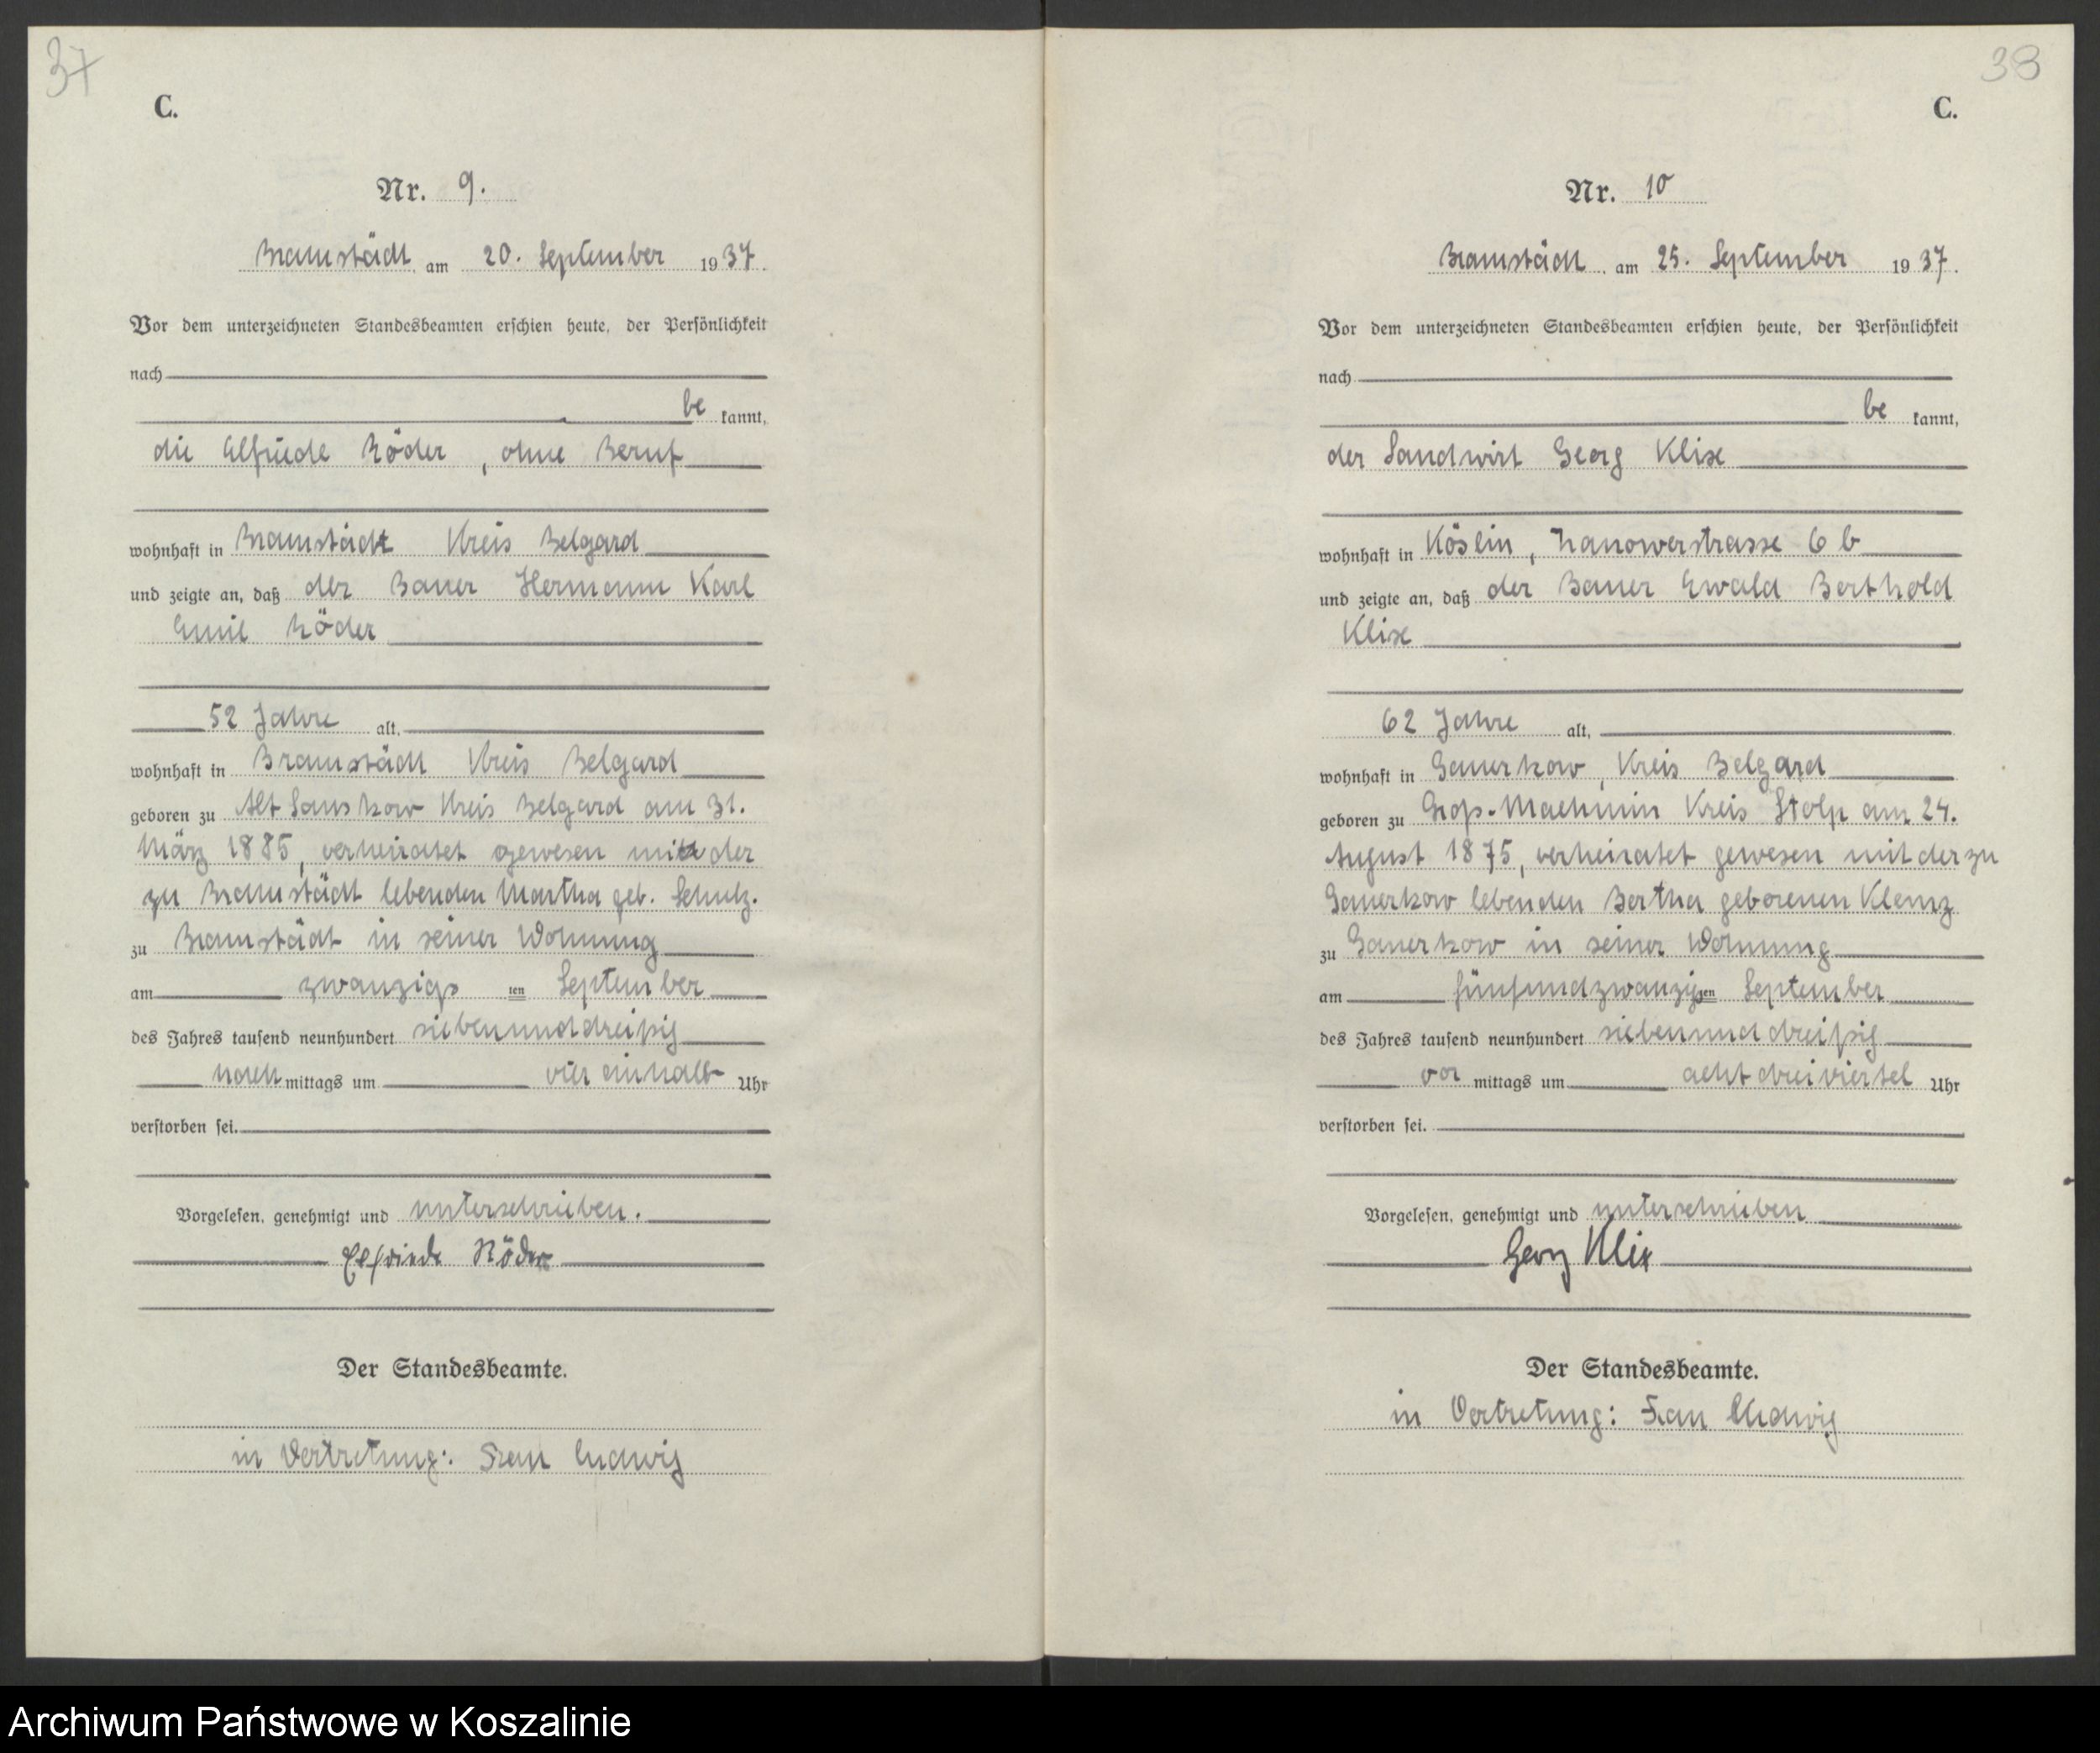 37
C.
Nr. 9.
Bramstädt am 20. September 1937.
Vor dem unterzeichneten Standesbeamten erschien heute, der Persönlichkeit
nach
be kannt,
die Elfriede Röder, ohne Beruf
wohnhaft in Bramstädt Kreis Belgard
und zeigte an, daß der Bauer Hermann Karl
Emil Röder
52 Jahre alt,
wohnhaft in Bramstädt Kreis Belgard
geboren zu Alt Sanskow Kreis Belgard am 31.
März 1885, verheiratet gewesen mit der
zu Bramstädt lebenden Martha geb. Schulz.
zu Bramstädt in seiner Wohnung
am zwanzigs ten September
des Jahres tausend neunhundert siebenunddreißig
nach mittags um vier einhalb Uhr
verstorben sei.
Vorgelesen, genehmigt und unterschrieben.
Elfriede Röder
Der Standesbeamte.
in Vertretung: Frau Ludwig
38
C.
Nr. 10
Bramstädt, am 25. September 1937.
Vor dem unterzeichneten Standesbeamten erschien heute, der Persönlichkeit
nach
be kannt,
der Landwirt Georg Klix
wohnhaft in Köslin, Zanowerstrasse 6 b
und zeigte an, daß der Bauer Ewald Berthold
Klix
62 Jahre alt,
wohnhaft in Gauerkow, Kreis Belgard
geboren zu Groß-Machmin Kreis Stolp am 24.
August 1875, verheiratet gewesen mit der zu
Gauerkow lebenden Bertha geborenen Klemz
zu Gauerkow in seiner Wohnung
am fünfundzwanzigsten September
des Jahres tausend neunhundert siebenunddreißig
vor mittags um acht dreiviertel Uhr
verstorben sei.
Vorgelesen, genehmigt und unterschrieben
Georg Klix
Der Standesbeamte.
in Vertretung: Frau Ludwig
Archiwum Państwowe w Koszalinie